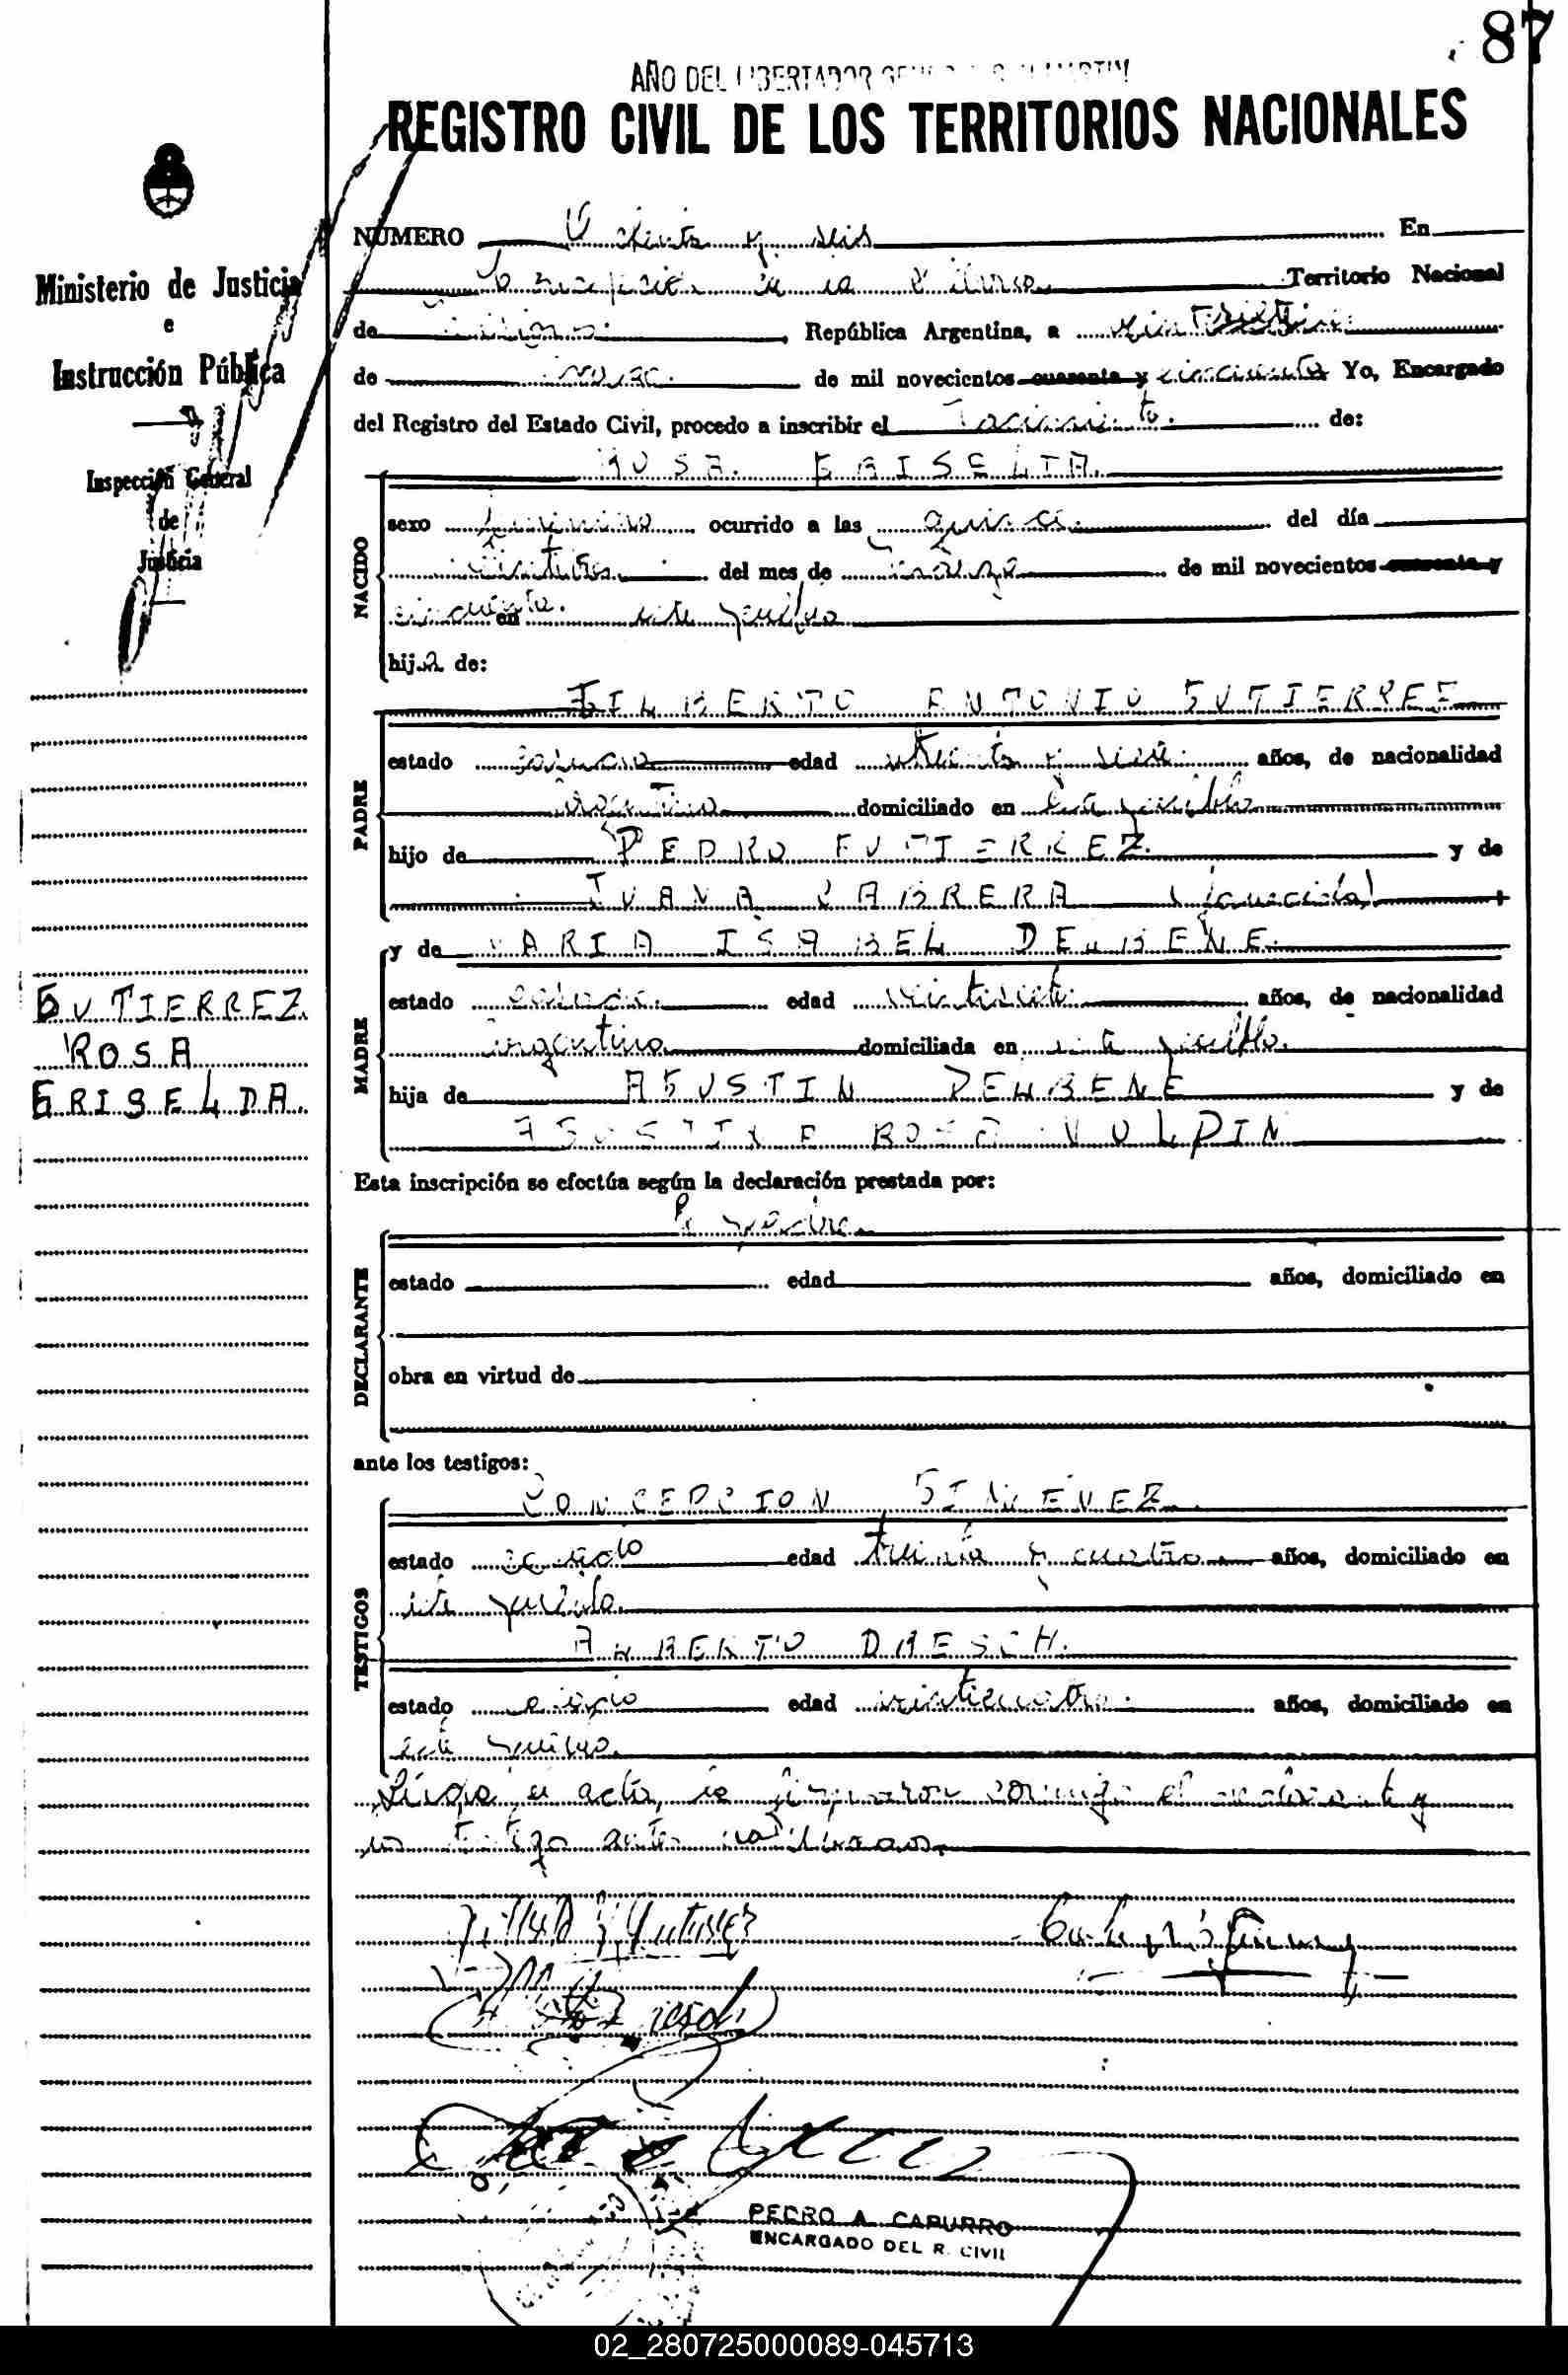 87
AÑO DEL LIBERTADOR GENERAL SAN MARTIN
REGISTRO CIVIL DE LOS TERRITORIOS NACIONALES
Ministerio de Justicia
e
Instrucción Pública
Inspección General
de
Justicia
NUMERO Ochenta y seis En
Territorio Nacional
de República Argentina, a
de de mil novecientos cuarenta y cincuenta Yo, Encargado
del Registro del Estado Civil, procedo a inscribir el nacimiento de:
ROSA GRISELDA
NACIDO
sexo femenino ocurrido a las quince del día
del mes de marzo de mil novecientos cuarenta y
cincuenta en este pueblo
hija de:
GILBERTO ANTONIO GUTIERREZ
PADRE
estado soltero edad treinta y siete años, de nacionalidad
argentina domiciliado en este pueblo
hijo de PEDRO GUTIERREZ y de
JUANA CABRERA (fallecida)
y de MARIA ISABEL DELBENE
MADRE
estado soltera edad veintisiete años, de nacionalidad
argentina domiciliada en este pueblo.
hija de AGUSTIN DELBENE y de
AGUSTINA ROSA VULPIN
Esta inscripción se efectúa según la declaración prestada por:
el padre
DECLARANTE
estado edad años, domiciliado en
obra en virtud de
ante los testigos:
CONCEPCION GIMENEZ
TESTIGOS
estado casado edad treinta y cuatro años, domiciliado en
este pueblo
ALBERTO DRESCH.
estado edad veinticuatro años, domiciliado en
este pueblo
Leída el acta, la firmaron conmigo el declarante y
los testigos antes nombrados
GUTIERREZ
ROSA
GRISELDA
PEDRO A. CAPURRO
ENCARGADO DEL R. CIVIL
02_280725000089-045713